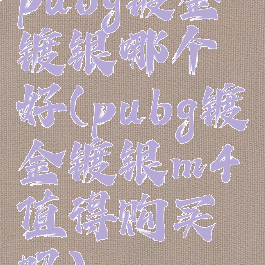 pubg镀金
镀银哪个
好(pubg镀
金镀银m4
值得购买
吗)